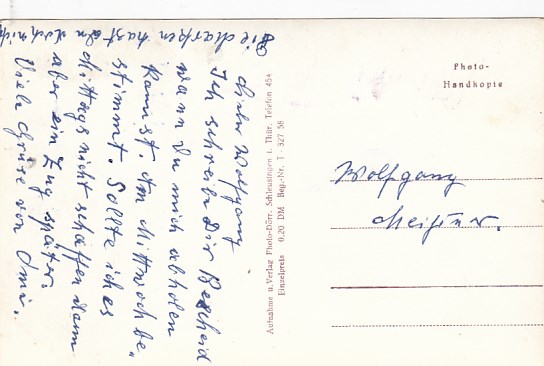 Die Marken hast Du doch nicht
Lieber Wolfgang
Ich schreibe Dir Bescheid
wann Du mich abholen
kannst. Am Mittwoch be„
stimmt. Sollte ich es
Mittags nicht schaffen dann
aber ein Zug später.
Viele Grüsse von Omi.
Aufnahme u. Verlag Photo-Dörr, Schleusingen i. Thür. Telefon 454
Einzelpreis 0,20 DM Beg.-Nr. T 327 58
Photo-
Handkopie
Wolfgang